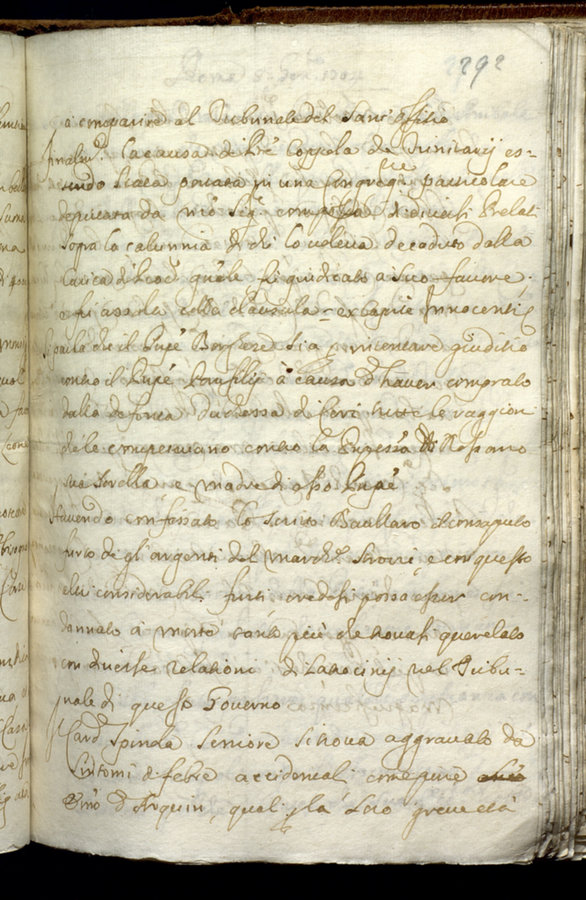 292
a comparire al Tribunale del Sant'Offitio
Finalmte la causa di Pre Coppola da Trinitarij es-
sendo stata portata in una Congregne particolare
deputata da nro Sigre composta di diversi Prelati
sopra la calunnia di chi lo voleva decaduto dalla
Carica di fu giudicata a suo favore,
e fu assoluto colla clausula = ex capite Innocentię
Si parla che il Prnpe Borghese sia p intentare giuditio
contro il Prnpe Panfilij à causa d'haver comprato
dalla defonta Duchessa di tutte le raggioni
che le competevano contro la Prnpessa di Rossano
sua sorella e madre di esso Prnpe
Havendo confessato lo Baullaro il consaputo
furto de gl'argenti del March. e con questo
altri considerabili furti credesi possa esser con-
dannato à morte tanto più che trovasi querelato
con diverse relationi di Latrocinij nel Tribu-
nale di questo Governo
Il Card. Spinola Seniore si trova aggravato da
sintomi di febre accidentali come pure
Emo d'Arquin, quali p la loro grave età